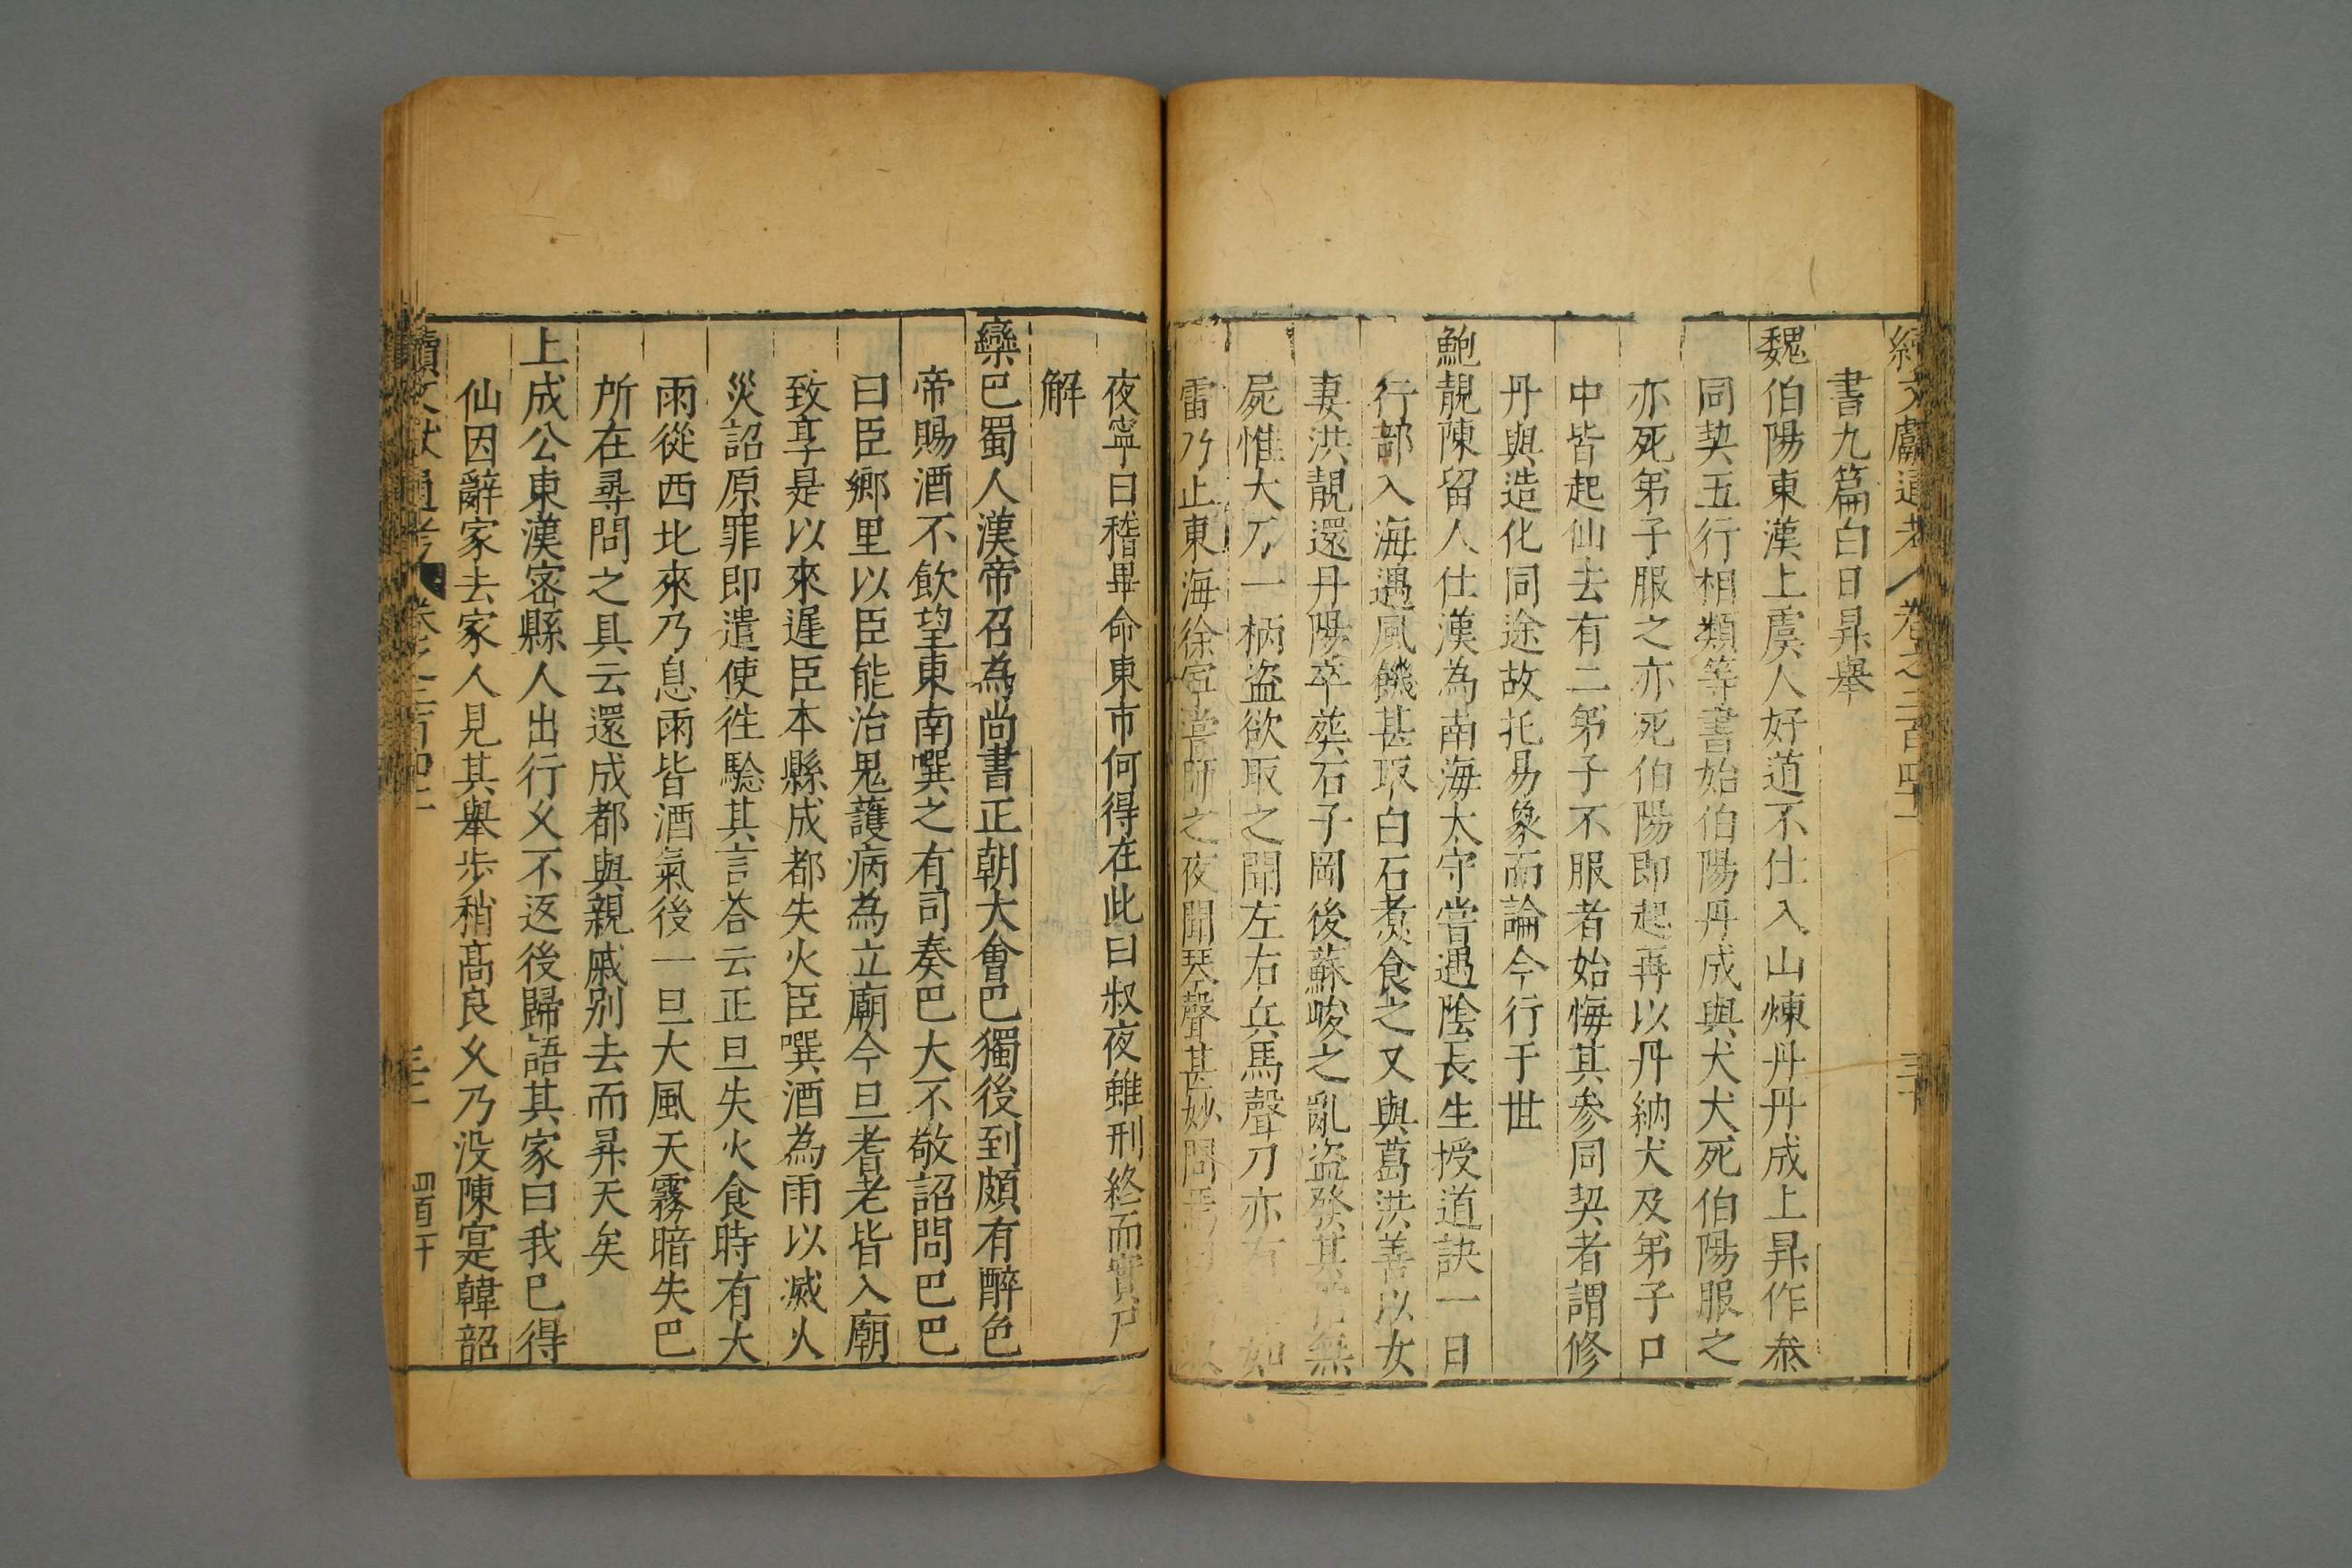 續文獻通考 卷之二百四十二 三十
書九篇白日昇舉
魏伯陽東漢上虞人好道不仕入山煉丹丹成上昇作叅
同契五行相類等書始伯陽丹成與犬犬死伯陽服之
亦死弟子服之亦死伯陽即起再以丹納犬及弟子口
中皆起仙去有二弟子不服者始悔其参同契者謂修
丹與造化同途故托易象而論今行于世
鮑靚陳留人仕漢為南海太守嘗遇陰長生授道訣一日
行部入海遇風饑甚取白石煮食之又與葛洪善以女
妻洪靚還丹陽卒葬石子岡後蘇峻之亂盜發其無
屍惟大刀一柄盜欲取之聞左右兵馬聲刀亦如
雷乃止東海徐寧嘗師之夜聞琴聲甚妙問焉
夜寧曰稽畢命東市何得在此曰叔夜雖刑終而實尸
解
欒巴蜀人漢帝召為尚書正朝大會巴獨後到頗有醉色
帝賜酒不飲望東南噀之有司奏巴大不敬詔問巴巴
曰臣鄉里以臣能治鬼護病為立廟今旦耆老皆入廟
致享是以來遲臣本縣成都失火臣噀酒為雨以滅火
災詔原罪即遣使徃驗其言答云正旦失火食時有大
雨從西北來乃息雨皆酒氣後一旦大風天霧暗失巴
所在尋問之具云還成都與親戚別去而昇天矣
上成公東漢密縣人出行乆不返後歸語其家曰我已得
仙因辭家去家人見其舉步稍高良乆乃没陳寔韓韶
續文獻通考 卷之二百四十二 三十一 四百二十